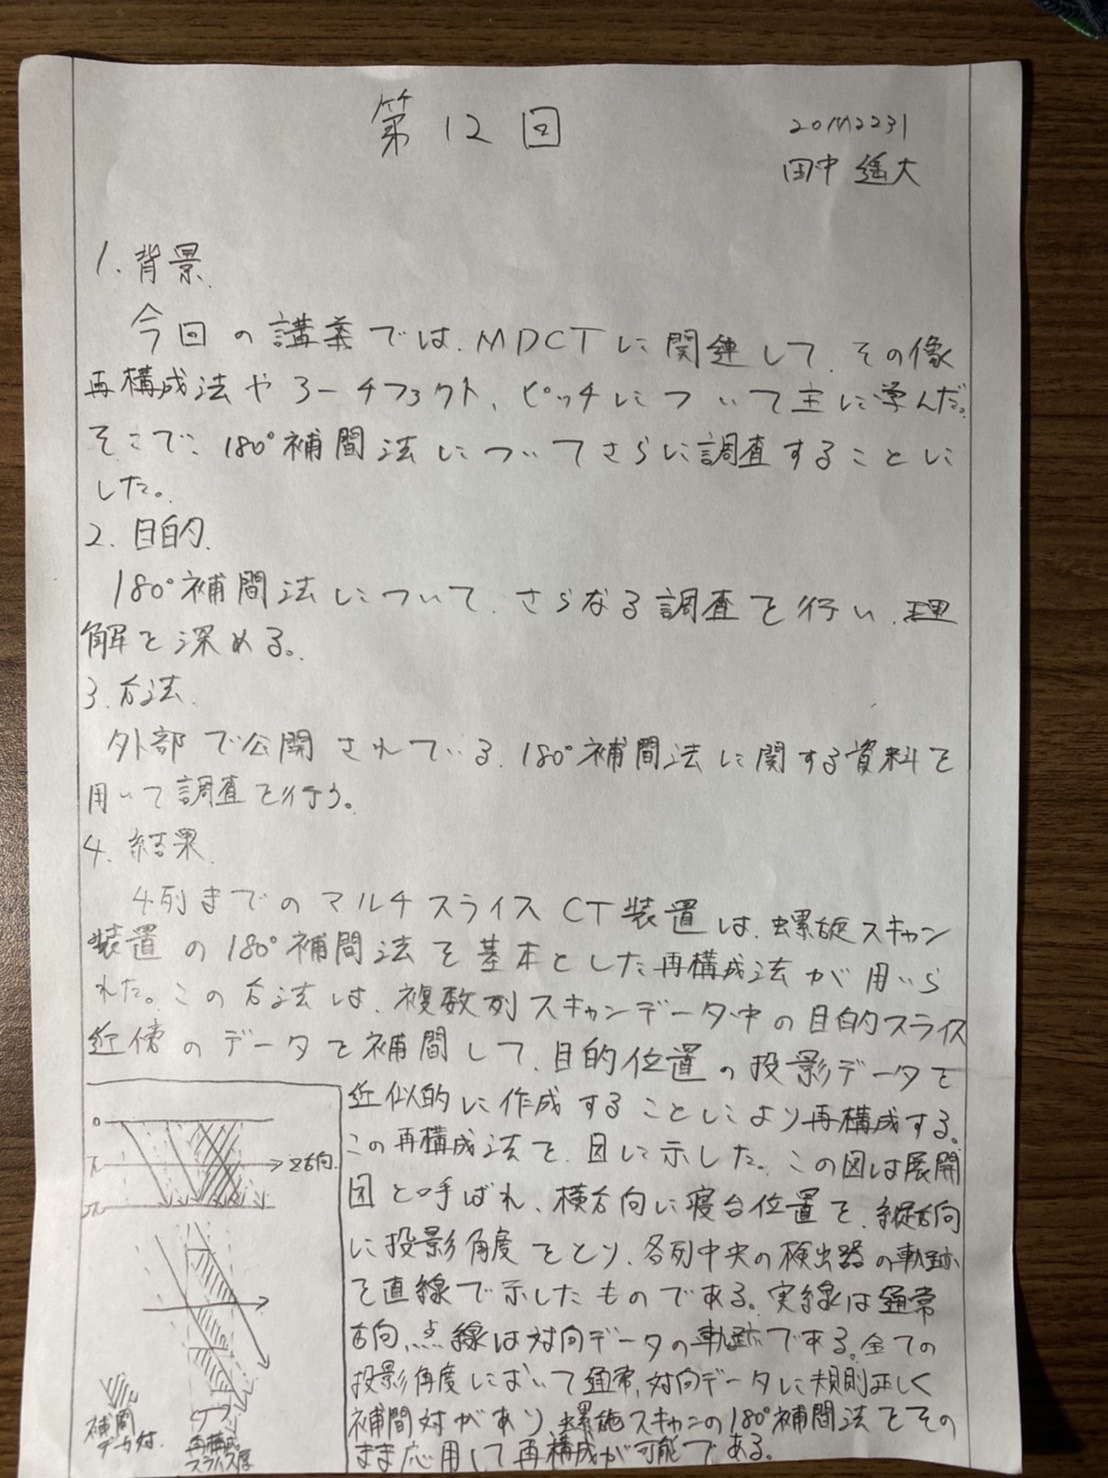 第12回
20M2231
田中 遥大
1. 背景.
今回の講義では、MDCTに関連して、その像
再構成法やアーチファクト、ピッチについて主に学んだ。
そこで、180°補間法についてさらに調査することに
した。
2. 目的.
180°補間法について、さらなる調査を行い、理
解を深める。
3. 方法.
外部で公開されている、180°補間法に関する資料を
用いて調査を行う。
4. 結果.
4列までのマルチスライスCT装置は、螺旋スキャン
装置の180°補間法を基本とした再構成法が用いら
れた。この方法は、複数列スキャンデータ中の目的スライス
近傍のデータを補間して、目的位置の投影データを
近似的に作成することにより再構成する。
この再構成法を、図に示した。この図は展開
図と呼ばれ、横方向に寝台位置を、縦方向
に投影角度をとり、各列中央の検出器の軌跡
を直線で示したものである。実線は通常
方向、点線は対向データの軌跡である。全ての
投影角度において通常、対向データに規則正しく
補間対があり、螺旋スキャンの180°補間法をその
まま応用して再構成が可能である。
0
π
2π
Z方向.
補間
データ対.
再構成
スライス厚